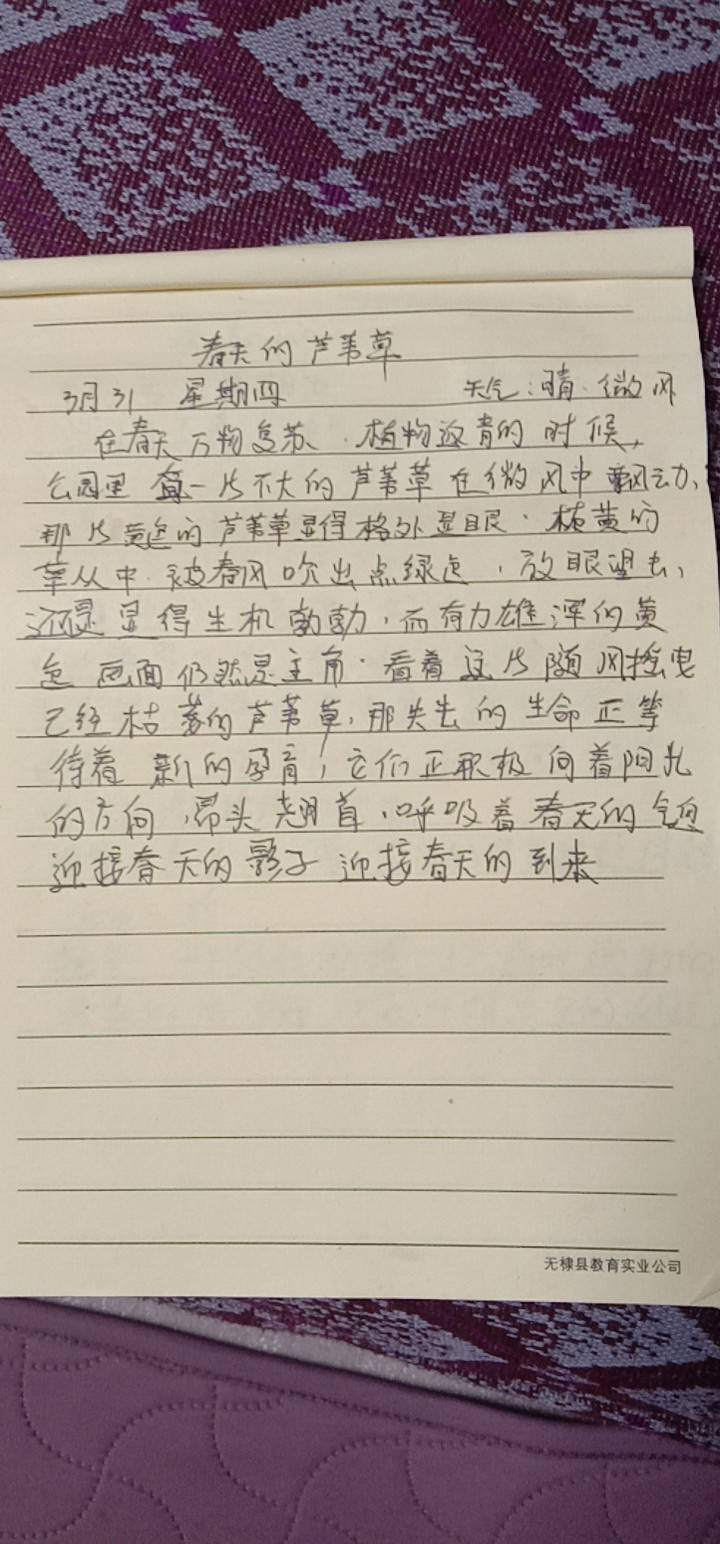 春天的芦苇草
3月31 星期四 天气:晴.微风
在春天万物复苏.植物返青的时候,
公园里有一片不大的芦苇草在微风中飘动,
那片黄色的芦苇草显得格外显眼.枯黄的
草丛中.被春风吹出点绿色,放眼望去,
还是显得生机勃勃,而有力雄浑的黄
色画面仍然是主角.看着这片随风摇曳
已经枯萎的芦苇草,那失去的生命正等
待着新的孕育,它们正积极向着阳光
的方向,昂头翘首,呼吸着春天的气息
迎接春天的影子 迎接春天的到来
无棣县教育实业公司